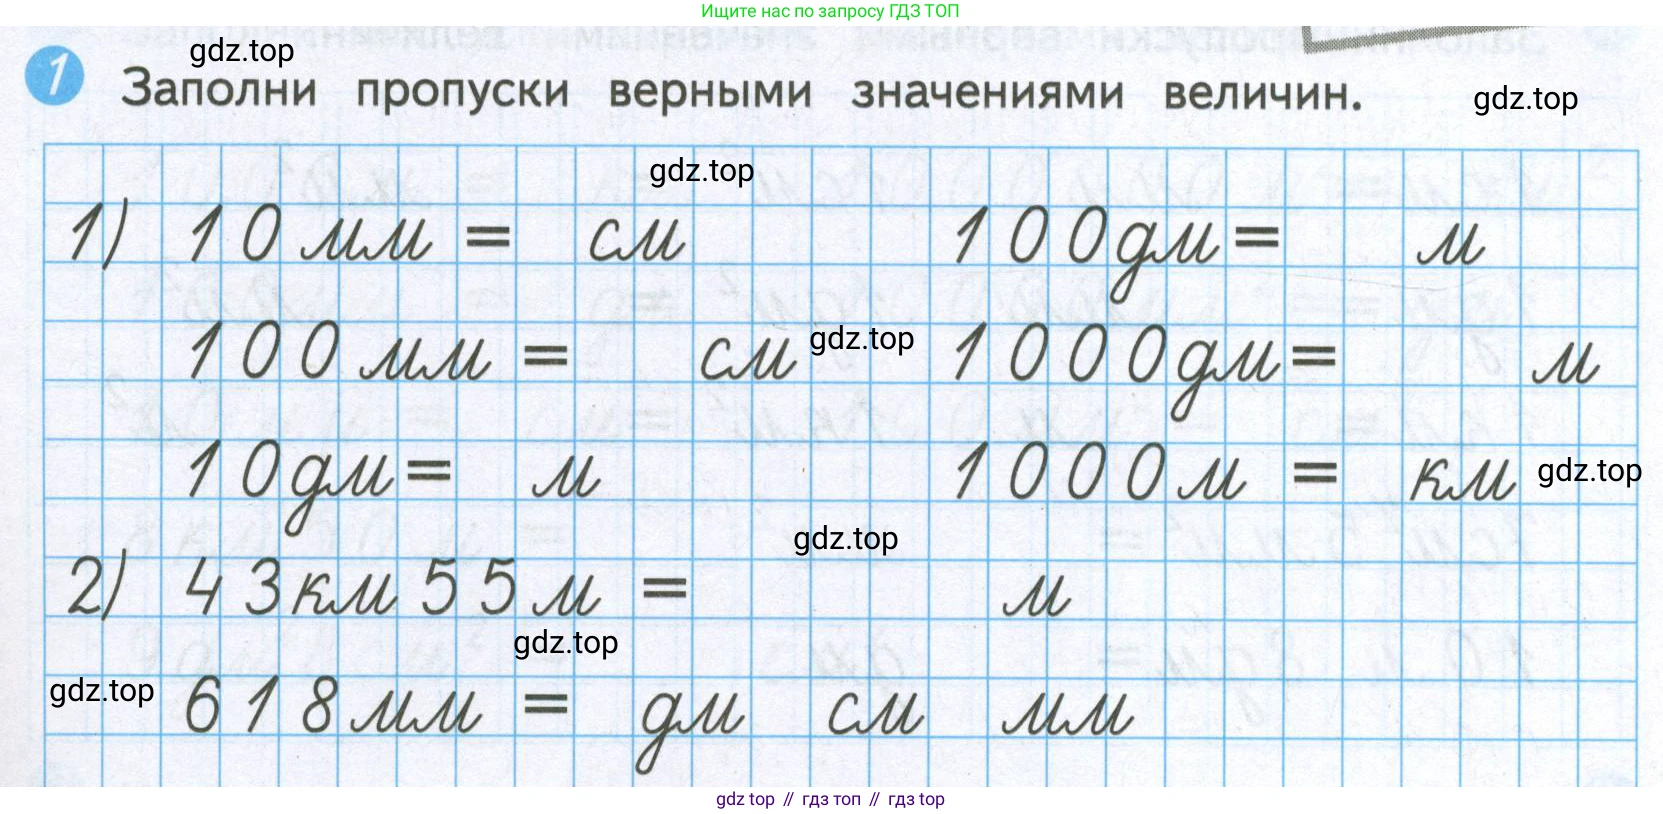 Ищите нас по запросу ГДЗ ТОП
gdz.top
1 Заполни пропуски верными значениями величин.
gdz.top
gdz.top
1) 10 мм = см 100 дм = м
100 мм = см gdz.top 1000 дм = м
10 дм = м 1000 м = км gdz.top
gdz.top
2) 43 км 55 м = м
gdz.top
gdz.top 618 мм = дм см мм
gdz top // гдз топ // gdz top